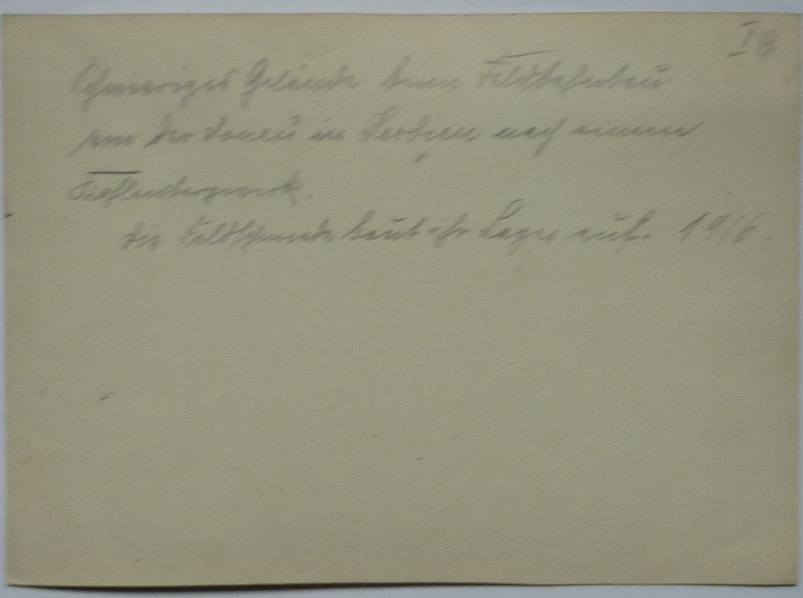 I
Schwieriges Gelände beim Feldbahnbau
von der Donau in Serbien nach einem
die Feldschmiede baut ihr Lager auf. 1916.